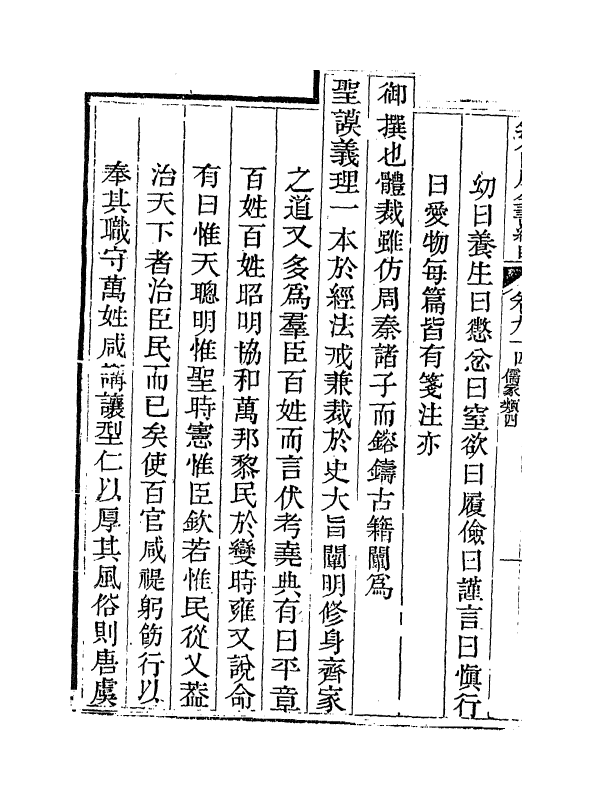 卷九十四 儒家類四
幼曰養生曰懲忿曰窒欲曰履儉曰謹言曰愼行
曰愛物每篇皆有箋注亦
御撰也體裁雖仿周秦諸子而鎔鑄古籍闡爲
聖謨義理一本於經法戒兼裁於史大旨闡明修身齊家
之道又多爲羣臣百姓而言伏考堯典有曰平章
百姓百姓昭明協和萬邦黎民於變時雍又說命
有曰惟天聰明惟聖時憲惟臣欽若惟民從乂葢
治天下者治臣民而已矣使百官咸禔躬飭行以
奉其職守萬姓咸講讓型仁以厚其風俗則唐虞